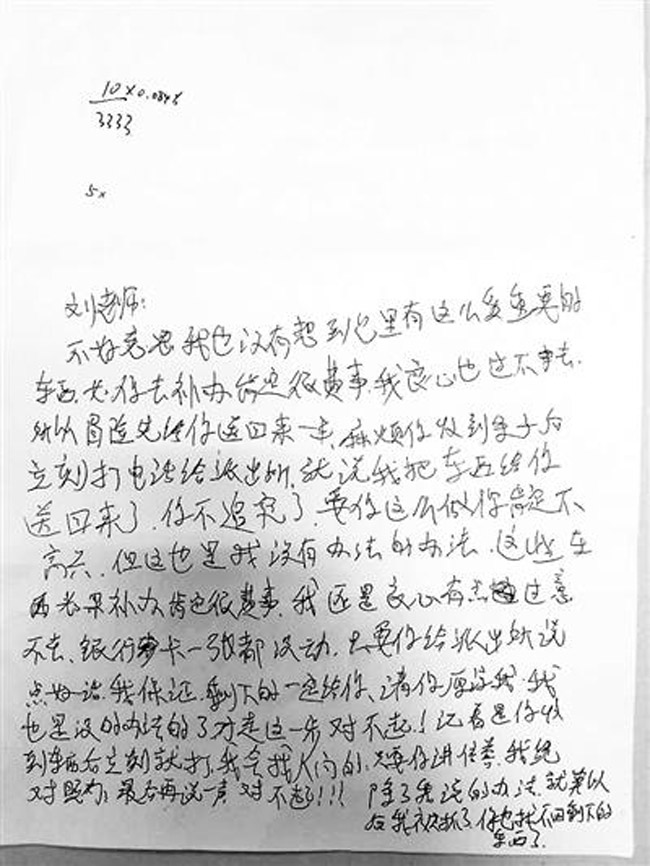 10×0.084%
3333
5×
刘老师:
不好意思我也没有想到包里有这么多重要的
东西.你去补办肯定很费事.我良心也过不去.
所以冒险先给你送回来一车.麻烦你收到车子后
立刻打电话给派出所.就说我把东西给你
送回来了.你不追究了.要你这么做你肯定不
高兴.但这也是我没有办法的办法.这些东
西如果补办肯定很费事.我还是良心有点过意
不去.银行卡一张都没动.只要你给派出所说
点好话.我保证.剩下的一定给你.请你原谅我.我
也是没的办法的了才走这一步对不起!记着是你收
到东西后立刻就打.我会找人问的.只要你讲信誉.我绝
对照办.最后再说一声对不起了!!! 除了我说的办法.就算以
后我被抓了.你也找不回剩下的
东西了.